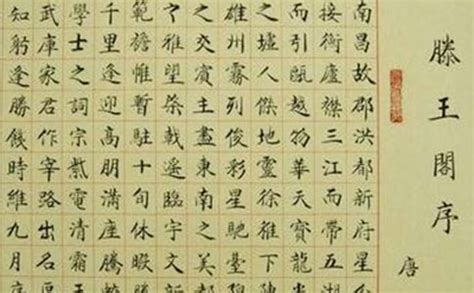 滕王閣序
唐
南昌故郡洪都新府星
接衡廬襟三江而帶五
而引甌越物華天寶龍
之墟人傑地靈徐孺下
雄州霧列俊彩星馳臺
之交賓盡東南之美都
之雅望棨戟遙臨宇文
範襜帷暫駐十旬休暇
千里逢迎高朋滿座騰
學士之詞宗紫電清霜王
武庫家君作宰路出名
知躬逢勝餞時維九月序